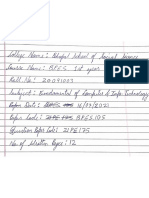 College Name: Bhopal School of Social Science
Course Name: B.P.E.S. 1st year
Roll No: 20091033
Subject: Fundamental of Computer & Info. Technology
Exam Date: 16/03/2021
Paper Code: BPES105
Question Paper Code: 21PE175
No. of Written Pages: 12